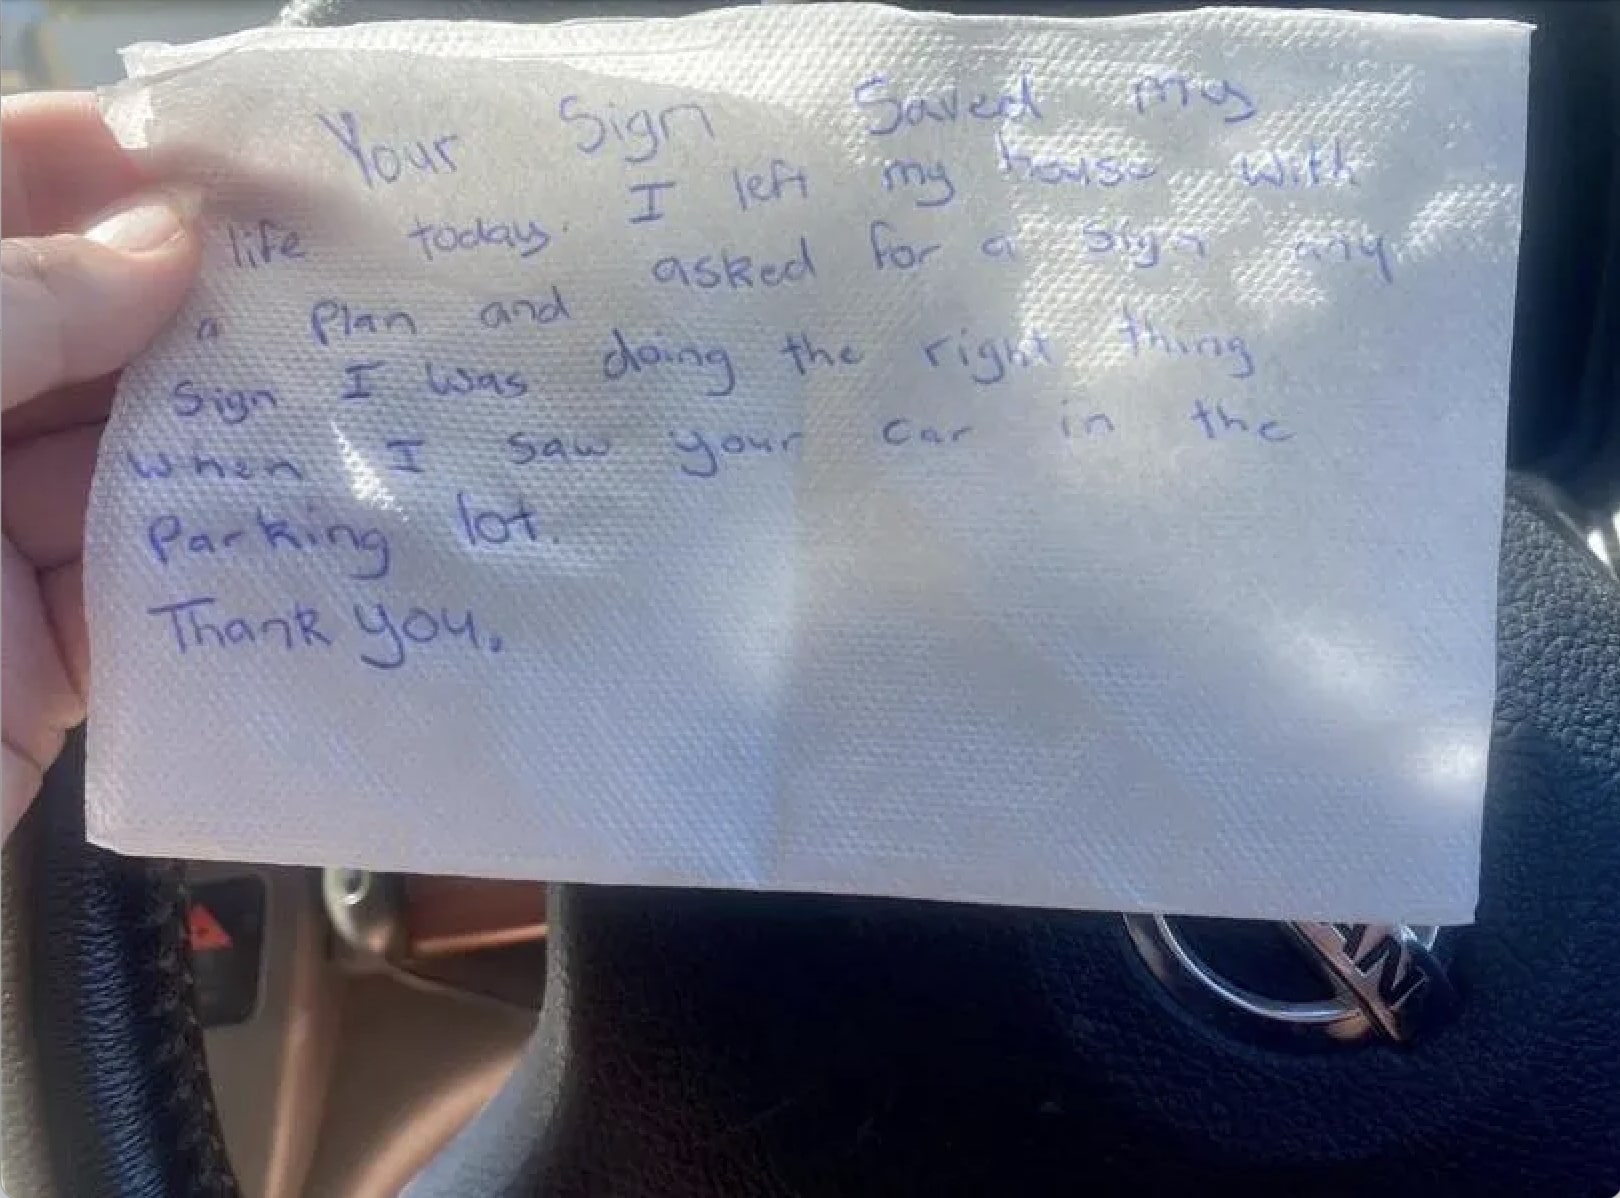 Your Sign Saved my
life today. I left my house with
a Plan and asked for a sign any
Sign I was doing the right thing
when I saw your car in the
Parking lot.
Thank you.